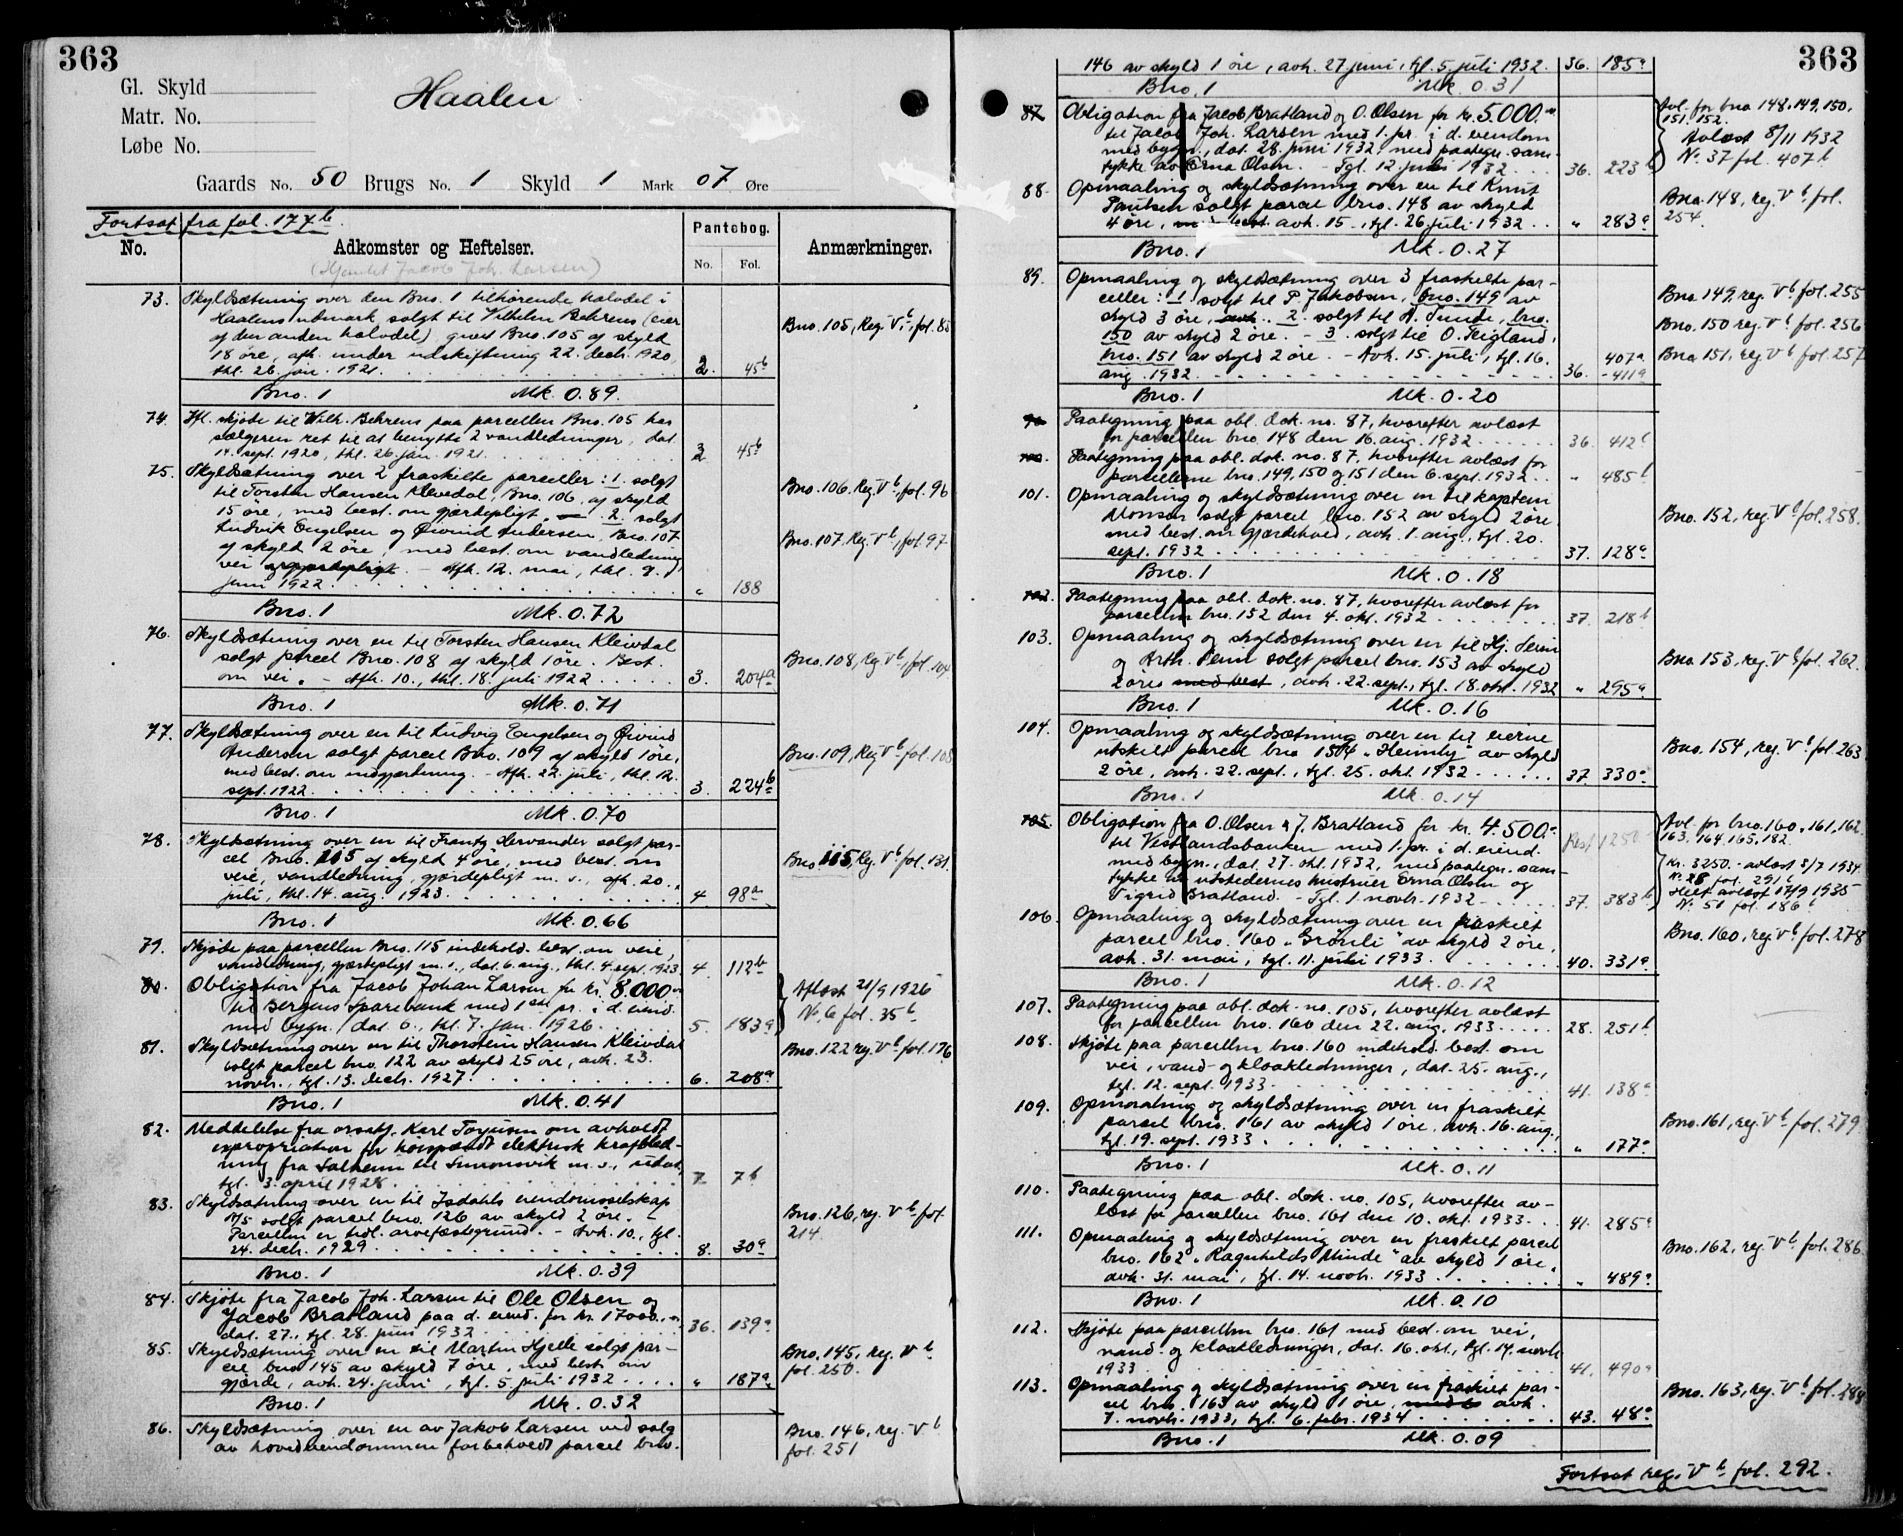 363
Gl. Skyld
Matr. No.
Løbe No.
Haalen
Gaards No. 50 Brugs No. 1 Skyld 1 Mark 07 Øre
Fortsat fra fol. 177b
No.
Adkomster og Heftelser.
(Hjemlet Jacob Joh. Larsen)
Pantebog.
No. Fol.
Anmærkninger.
73. Skyldsætning over den Bno. 1 tilhørende halvdel i
Haalens udmark solgt til Vilhelm Behrens (eier
af den anden halvdel) givet Bno. 105 af skyld Bno. 105, Reg. Vb, fol. 85
18 øre, afh. under udskiftning 22. decb. 1920,
thl. 26. jan. 1921. 2. 45b
Bno. 1 Mk. 0.89.
74. Ifl. skjøte til Wilh. Behrens paa parcellen Bno. 105 har
sælgeren ret til at benytte 2 vandledninger, dat.
14. sept. 1920, thl. 26. jan. 1921. 2 45b
75. Skyldsætning over 2 fraskilte parceller: 1. solgt
til Torsten Hansen Kleivdal, Bno. 106 af skyld Bno. 106. Reg. Vb, fol. 96
15 øre, med best. om gjærdepligt. 2. solgt
Ludvik Engelsen og Øivind Andersen, Bno. 107 Bno. 107. Reg. Vb, fol. 97
af skyld 2 øre, med best. om vandledning,
vei og gjærdepligt. – Afh. 12. mai, thl. 9.
juni 1922. " 188
Bno. 1 Mk. 0.72
76. Skyldsætning over en til Torsten Hansen Kleivdal
solgt parcel Bno. 108 af skyld 1 øre. Best. Bno. 108, Reg. Vb, fol. 104
om vei. – Afh. 10., thl. 18. juli 1922 3. 204a
Bno. 1 Mk. 0.71
77. Skyldsætning over en til Ludvig Engelsen og Øivind
Anderson solgt parcel Bno. 109 af skyld 1 øre, Bno. 109, Reg. Vb, fol. 108
med best. om indgjærdning. – Afh. 22. juli, thl. 12.
sept. 1922. 3. 224b
Bno. 1 Mk. 0.70
78. Skyldsætning over en til Frantz Hervander solgt par-
cel Bno. 115 af skyld 4 øre, med best. om Bno. 115, Reg. Vb, fol. 131.
veie, vandledning, gjærdepligt m. v., afh. 20.
juli, thl. 14. aug. 1923. 4 98a
Bno. 1 Mk. 0.66
79. Skjøte paa parcellen Bno. 115 indehold. best. om veie,
vandledning, gjærdepligt m. v., dat. 6. aug., thl. 4. sept. 1923 4. 112b
80. Obligation fra Jacob Johan Larsen for kr. 8.000 Aflæst 21/9 1926
til Bergens Sparebank med 1ste pr. i d. eiend. No. 6 fol. 35b
med bygn. dat. 6., thl. 7. jan. 1926. 5. 183a
81. Skyldsætning over en til Thorstein Hansen Kleivdal Bno. 122 reg. Vb. fol. 176
solgt parcel bno. 122 av skyld 25 øre, avh. 23.
novbr., tgl. 13. decb. 1927. 6. 208a
Bno. 1 Mk. 0.41
82. Meddelelse fra orsakf. Karl Torjusen om avholdt
expropriation for høispændt elektrisk kraftled-
ning fra Salheim til Simonsvik m. v., udat.,
tgl. 3. april 1928. 7 7b
83. Skyldsætning over en til Isdahls eiendomsselskap
A/S solgt parcel bno. 126 av skyld 2 øre. – Bno. 126, reg. Vb fol.
Parcellen er tidl. arvefæstegrund. – Avh. 10., tgl. 214
24. decb. 1929. 8. 30a
Bno. 1 Mk. 0.39
84. Skjøte fra Jacob Joh. Larsen til Ole Olsen og
Jacob Bratland paa d. eiend. for kr. 17000.,
dat. 27., tgl. 28. juni 1932 36. 139a
85. Skyldsætning over en til Martin Hjelle solgt par-
cel bno 145 av skyld 7 øre, med best. om Bno. 145, reg. Vb
gjærde, avh. 24. juni, tgl. 5 juli 1932. " 187a fol. 250.
Bno. 1 Mk. 0.32
86. Skyldsætning over en av Jakob Larsen ved salg Bno. 146, reg. Vb
av hovedeiendommen forbeholdt parcel bno. fol. 251
363
146 av skyld 1 øre, avh. 27 juni, tgl. 5. juli 1932. 36. 185a
Bno. 1 Mk. 0.31
87. Obligation fra Jacob Bratland og O. Olsen for kr. 5.000. Avl. for bno 148, 149, 150,
til Jacob Joh. Larsen med 1. pr. i d. eiendom 151, 152.
med bygn., dat. 28. juni 1932, med paategn. sam- Avlæst 8/11 1932
tykke av Erna Olsen. – Tgl. 12. juli 1932 36. 223b No. 37 fol. 407b
88. Opmaaling og skyldsætning over en til Knut
Paulsen solgt parcel bno. 148 av skyld Bno. 148, reg. Vb. fol.
4 øre, med best. avh. 15., tgl. 26. juli 1932 " 283a 254.
Bno. 1 Mk. 0.27
89. Opmaaling og skyldsætning over 3 fraskilte par-
celler: 1. solgt til P. Jakobsen, bno. 149 av Bno. 149, reg. Vb, fol. 255
skyld 3 øre, avh. 2. solgt til A. Tunde, bno.
150 av skyld 2 øre. – 3. solgt til O. Teigland, Bno. 150 reg. Vb fol. 256
bno. 151 av skyld 2 øre. – Avh. 15. juli, tgl. 16. Bno 151, reg. Vb fol. 257
aug. 1932. 36. 407a-411a
Bno. 1 Mk. 0.20
90. Paategning paa obl. dok. no. 87, hvorefter avlæst
for parcellen bno. 148 den 16. aug. 1932 36. 412b
100. Paategning paa obl. dok. no. 87, hvorefter avlæst for
parcellerne bno. 149, 150 og 151 den 6. sept. 1932. " 485b
101. Opmaaling og skyldsætning over en til kaptein
Monsen solgt parcel bno. 152 av skyld 2 øre Bno. 152, reg. Vb fol. 258.
med best. om gjærdehold, avh. 1. aug., tgl. 20.
sept. 1932 37. 128a
Bno. 1 Mk. 0.18
102. Paategning paa obl. dok. no. 87, hvorefter avlæst for
parcellen bno. 152 den 4. okt. 1932 37. 218b
103. Opmaaling og skyldsætning over en til Hj. Seim
og Arth. Seim solgt parcel bno. 153 av skyld Bno. 153, reg. Vb fol. 262.
2 øre med best, avh. 22. sept., tgl. 18. okt. 1932 " 295a
Bno. 1 Mk. 0.16
104. Opmaaling og skyldsætning over en til eierne
utskilt parcel bno 154 "Heimly" av skyld Bno. 154, reg. Vb fol. 263
2 øre, avh. 22. sept., tgl. 25. okt. 1932 37. 330a
Bno. 1 Mk. 0.14
105. Obligation fra O. Olsen og J. Bratland for kr. 4.500. Rest 1250 Avl. for bno. 160, 161, 162,
til Vestlandsbanken med 1. pr. i d. eiend. 163, 164, 165, 182.
med bygn., dat. 27. okt. 1932, med paategn. sam- Kr. 3250.- avlæst 5/7 1934
tykke av utstedernes hustruer Erna Olsen og No. 28 fol. 291b
Sigrid Bratland. – Tgl. 1 novbr. 1932 37. 383b Helt avlæst 17/9 1935
No. 51 fol. 186b
106. Opmaaling og skyldsætning over en fraskilt
parcel bno. 160 "Grønli" av skyld 2 øre, Bno. 160, reg. Vb fol. 278
avh. 31. mai, tgl. 11. juli 1933. 40. 331a
Bno. 1 Mk. 0.12
107. Paategning paa obl. dok. no. 105, hvorefter avlæst
for parcellen bno. 160 den 22. aug. 1933 28. 251b
108. Skjøte paa parcellen bno. 160 indehold. best. om
vei, vand- og kloakledninger, dat. 25. aug.,
tgl. 12. sept. 1933. 41. 138a
109. Opmaaling og skyldsætning over en fraskilt
parcel bno. 161 av skyld 1 øre, avh. 16. aug., Bno. 161, reg. Vb fol. 279
tgl. 19. sept. 1933 " 177a
Bno. 1 Mk. 0.11
110. Paategning paa obl. dok. no. 105, hvorefter av-
læst for parcellen bno. 161 den 10. okt. 1933. 41. 285a
111. Opmaaling og skyldsætning over en fraskilt parcel
bno. 162 "Ragnhilds Minde" av skyld 1 øre, Bno. 162, reg. Vb fol. 286
avh. 31. mai, tgl. 14. novbr. 1933 " 489a
Bno. 1 Mk. 0.10
112. Skjøte paa parcellen bno. 161 med best. om vei,
vand- og kloakledninger, dat. 16. okt., tgl. 14. novbr.
1933 41. 490a
113. Opmaaling og skyldsætning over en fraskilt par-
cel bno. 163 av skyld 1 øre, med b avh. Bno. 163, reg. Vb fol. 288
7. novbr. 1933, tgl. 6. febr. 1934 43. 48a
Bno. 1 Mk. 0.09
Fortsat reg. Vb fol. 292.